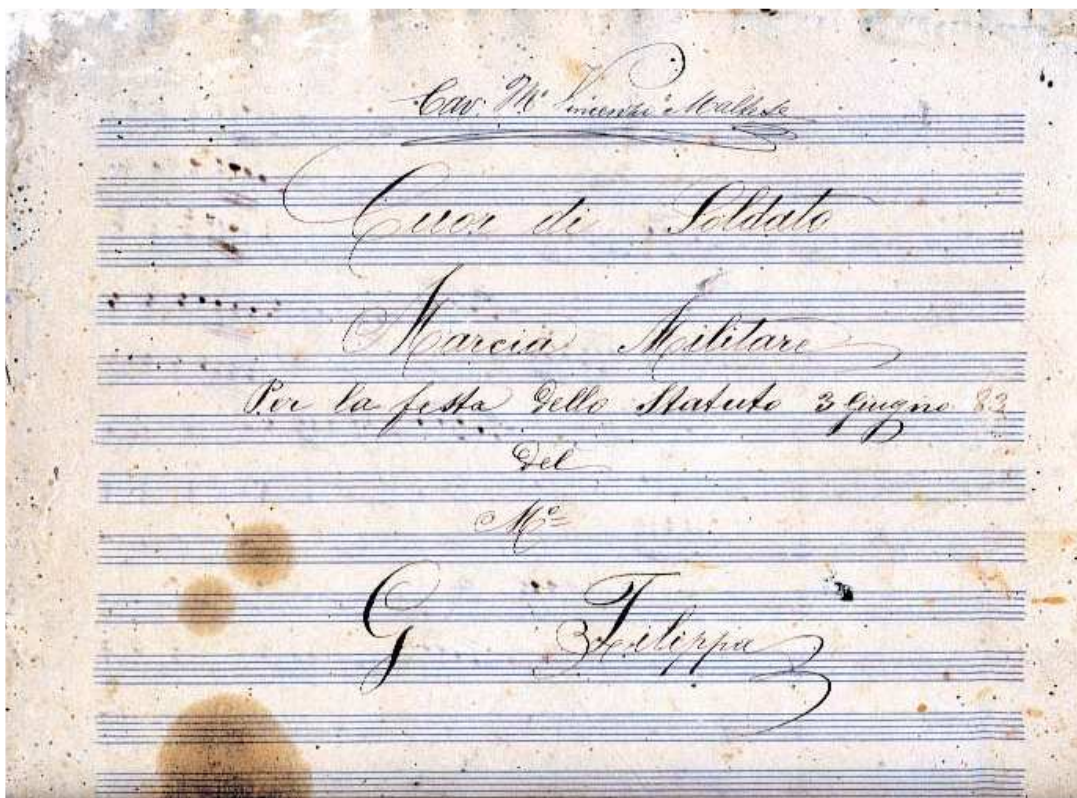 Cav. Mº Vincenzo Maltese
Cuor di Soldato
Marcia Militare
Per la festa dello Statuto 3 Giugno 83
del
Mº
G Filippa